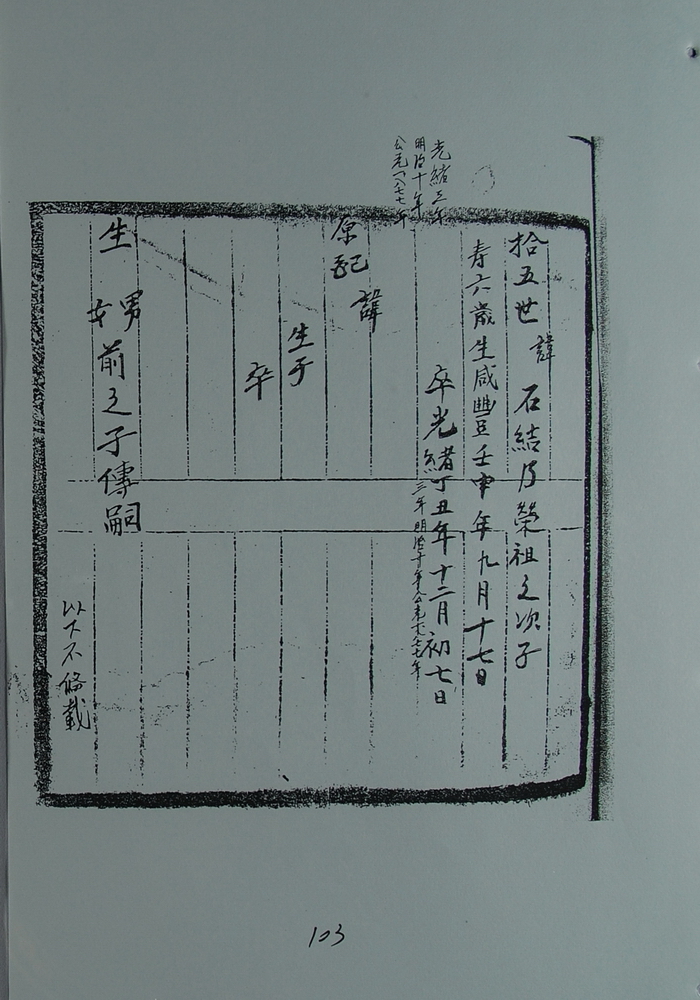 拾五世 諱 石結乃榮祖之次子
壽六歲生咸豐壬申年九月十七日
卒光緒丁丑年十二月初七日
三年明治十年公元一八七七年
光緒三年
明治十年
公元一八七七年
原配 諱
生于
卒
生 男 女 前之子傳嗣
以下不條載
103